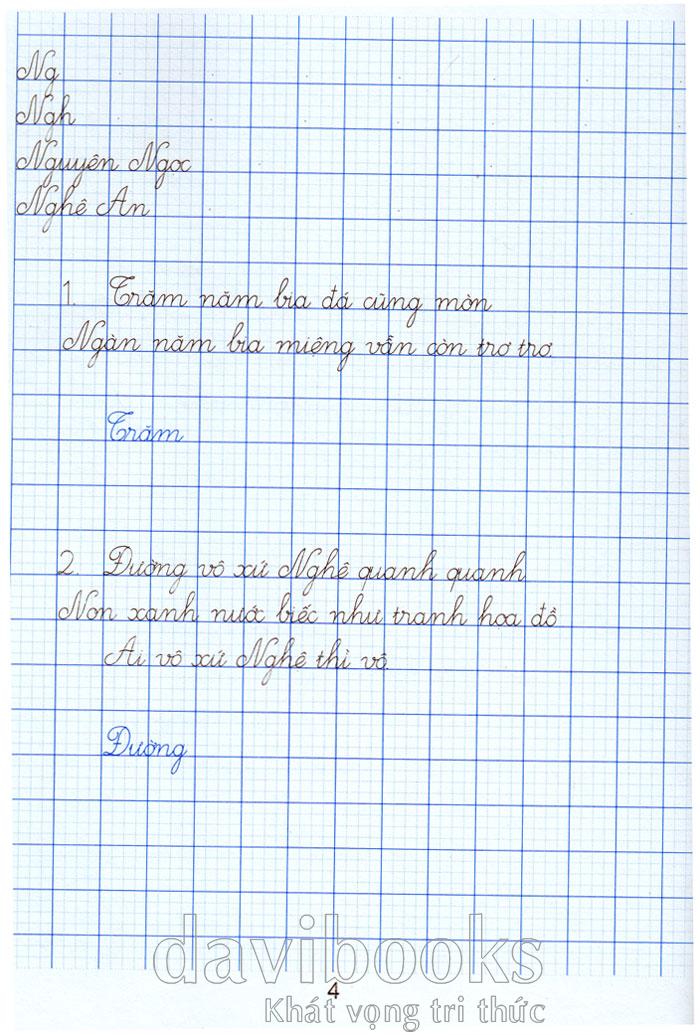 Ng
Ngh
Nguyên Ngọc
Nghệ An
1. Trăm năm bia đá cũng mòn
Ngàn năm bia miệng vẫn còn trơ trơ.
Trăm
2. Đường vô xứ Nghệ quanh quanh
Non xanh nước biếc như tranh hoạ đồ
Ai vô xứ Nghệ thì vô.
Đường
davibooks
4
Khát vọng tri thức